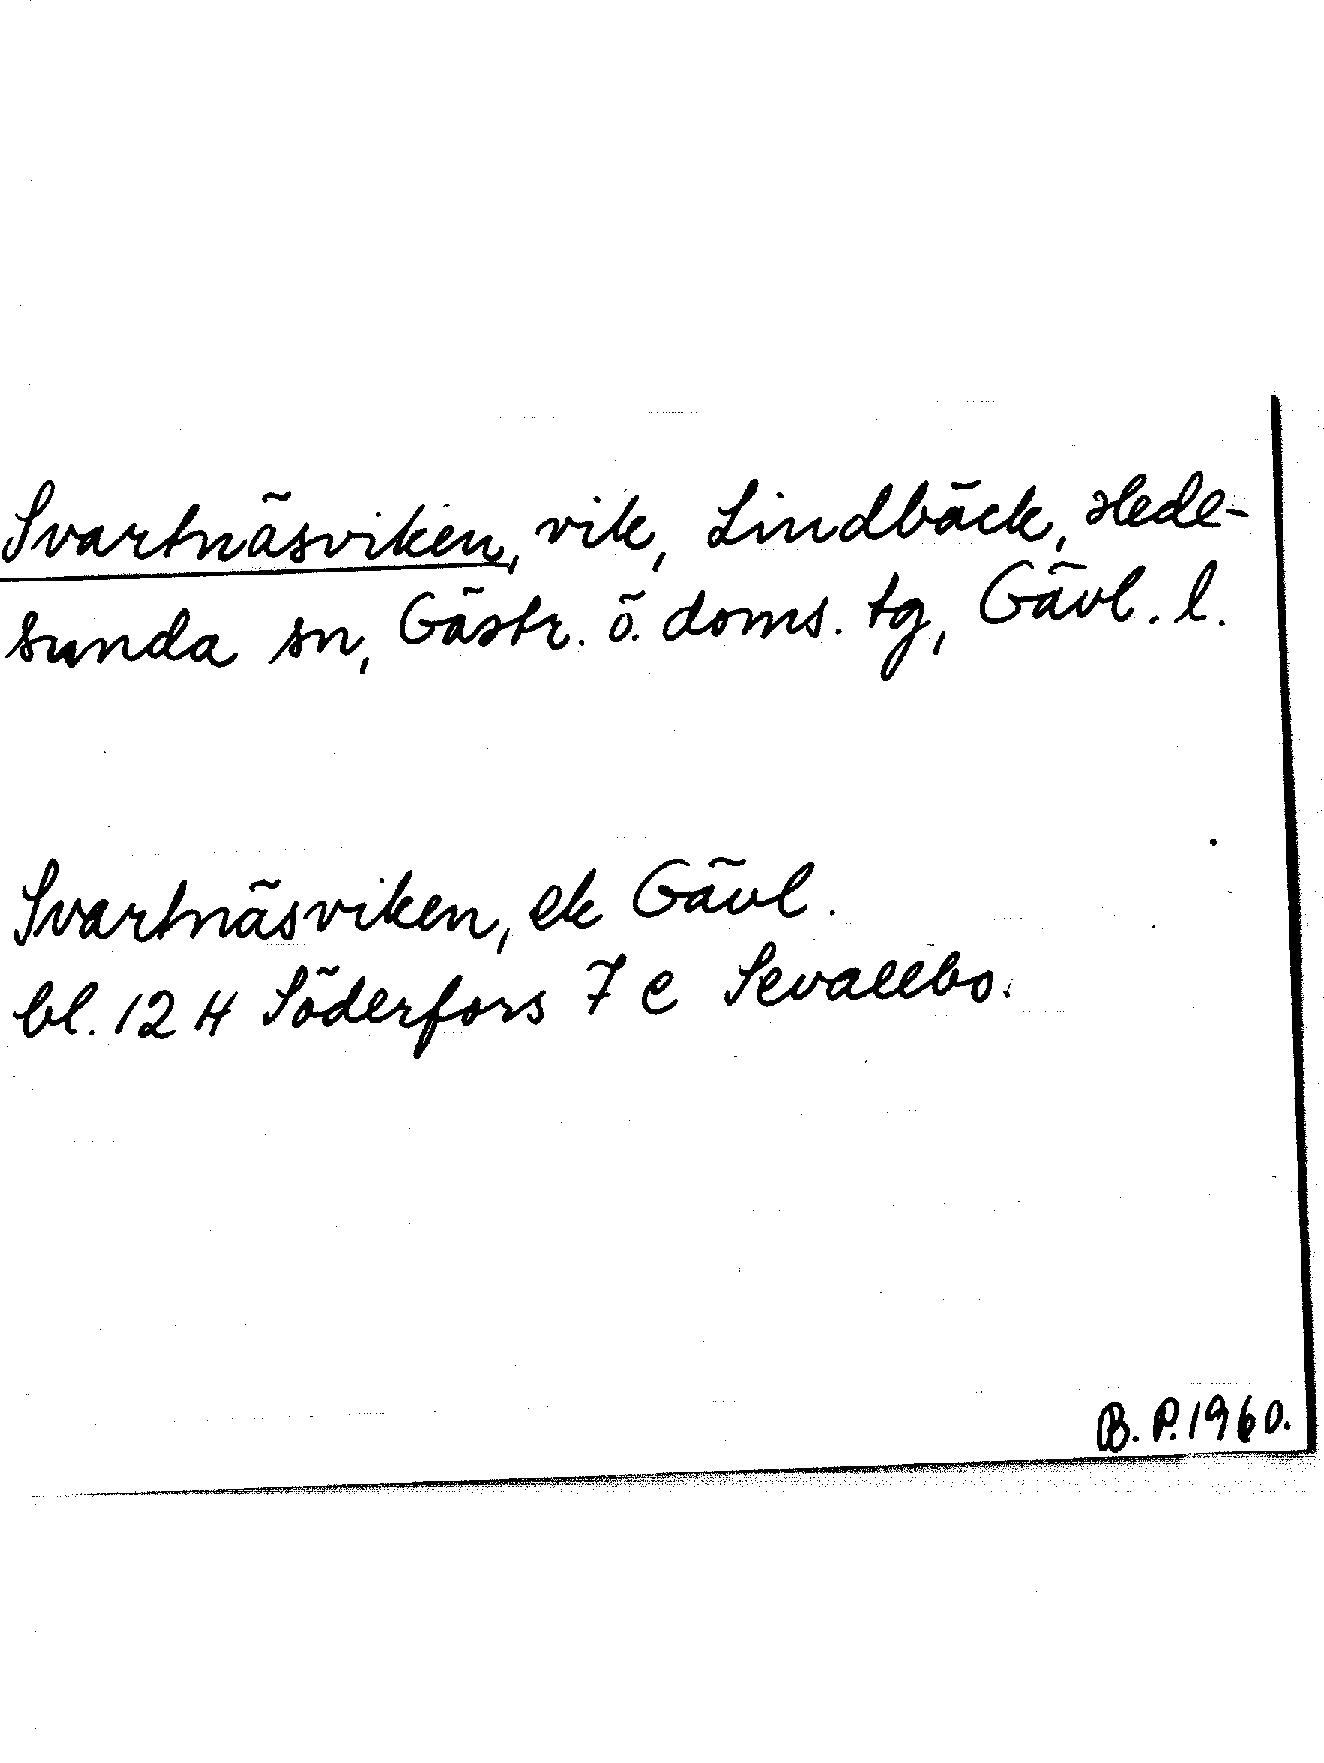 Svartnäsviken, vik, Lindbäck, Hede-
sunda sn, Gästr. ö. doms. tg, Gävl. l.
Svartnäsviken, ek Gävl.
bl. 12 H Söderfors 7 c Sevallbo.
B. P. 1960.